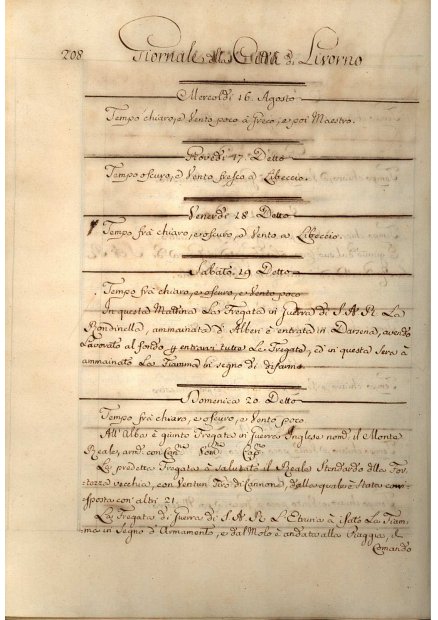 208 Giornale della Città di Livorno
Mercoldì 16. Agosto
Tempo chiaro, e Vento poco à Greco, e poi Maestro.
Giovedì 17. Detto
Tempo oscuro, e Vento fresco à Libeccio.
Venerdì 18 Detto
Tempo frà chiaro, e oscuro, e Vento a Libeccio.
Sabato. 19 Detto
Tempo frà chiaro, e oscuro, e Vento poco
In questa Mattina La Fregata in Guerra di S. A. R. La
Rondinella, ammainata di Alberi è entrata in Darsena, avendo
Lavorato al fondo entrare tutte Le Fregate, ed in questa Sera à
ammainato La Fiamma in segno di disarmo.
Domenica 20. Detto
Tempo frà chiaro, e oscuro, e Vento poco.
All'Alba è giunto Fregata in Guerra Inglese nom. il Monte
Reale, arm. con Can. Uom. Cap.
La predetta Fregata à salutato il Reale Stendardo della For-
tezza vecchia, con Ventun Tiro di Cannone, dalla quale è Stata cor-
risposta con altri 21.
La Fregata di Guerra di S. A. R. L'Etruria à isato La Fiam-
ma in segno d'Armamento, e dal Molo è andata alla Piaggia, il
Comando